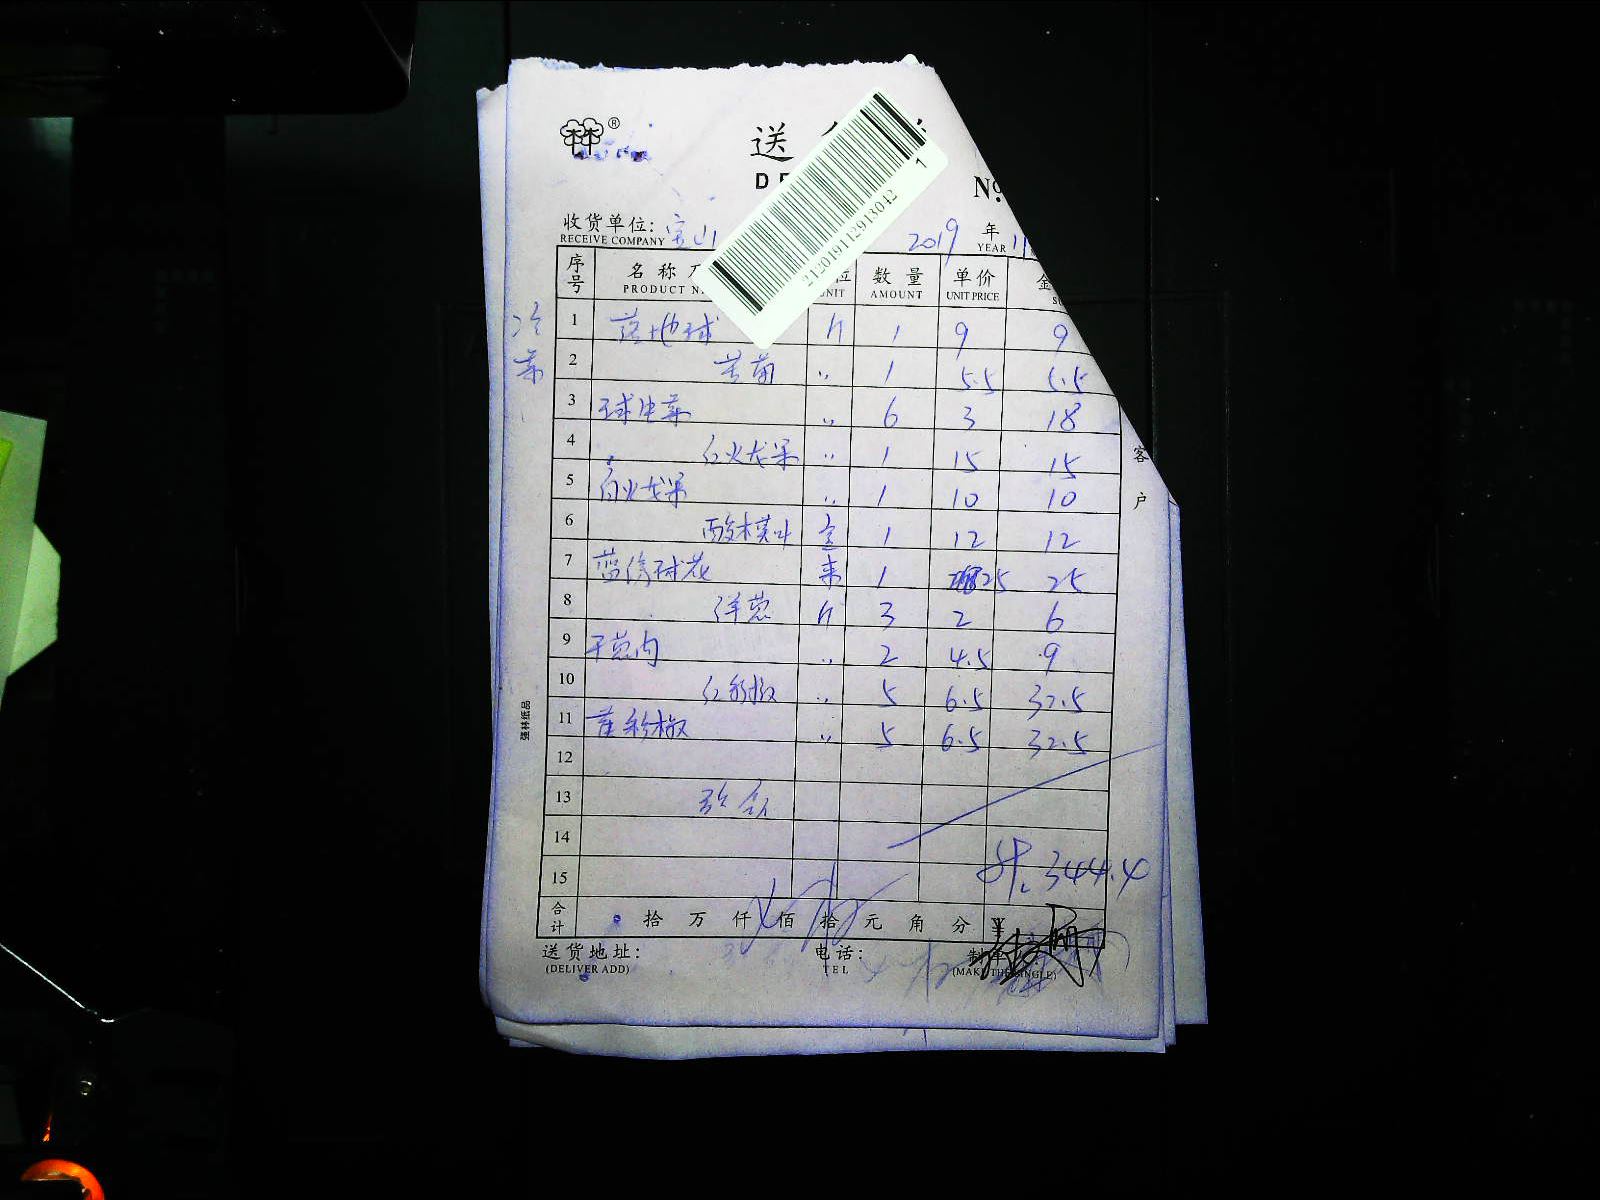 ®
送
D
№.
收货单位: 宝山
RECEIVE COMPANY
2019 年 11
YEAR
212019112913042 1
序号 名称 位 数量 单价 金
PRODUCT N UNIT AMOUNT UNIT PRICE
冷菜
1 落地球 斤 1 9 9
2 苦菊 〃 1 5.5 5.5
3 球生菜 〃 6 3 18
4 红火龙果 〃 1 15 15
5 白火龙果 〃 1 10 10
6 酸模叶 盒 1 12 12
7 蓝绣球花 束 1 25 25
8 洋葱 斤 3 2 6
9 干葱肉 〃 2 4.5 9
10 红彩椒 〃 5 6.5 32.5
11 黄彩椒 〃 5 6.5 32.5
12
13
14
15
344.4
合计 拾 万 仟 佰 拾 元 角 分 ¥
送货地址:
(DELIVER ADD)
电话:
TEL
制单
(MAKE THE SINGLE)
客户
强林纸品